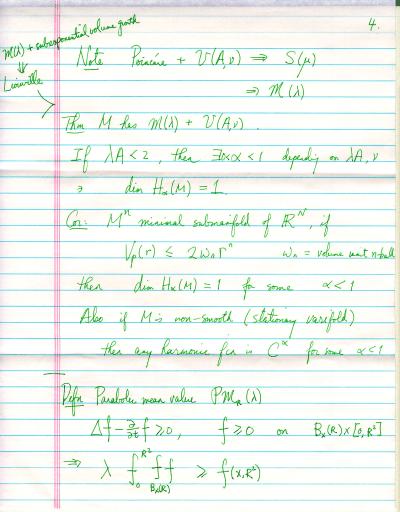 4.
M(λ) + subexponential volume growth
⇓
Liouville
Note Poincáre + V(A,ν) ⇒ S(μ)
⇒ M(λ)
Thm M has M(λ) + V(A,ν).
If λA<2, then ∃ 0<α<1 depending on λA, ν
∋ dim Hα(M) = 1.
Cor: Mⁿ minimal submanifold of ℝᴺ, if
Vp(r) ≤ 2ωₙrⁿ ωₙ = volume unit n-ball
then dim Hα(M) = 1 for some α<1
Also if M is non-smooth (stationary varifold)
then any harmonic fcn is Cᵅ for some α<1
Defn Parabolic mean value PM_R(λ)
Δf - ∂/∂t f ≥ 0, f ≥ 0 on Bx(R)×[0,R²]
⇒ λ ⨍₀^{R²} ⨍_{Bx(R)} f ≥ f(x,R²)